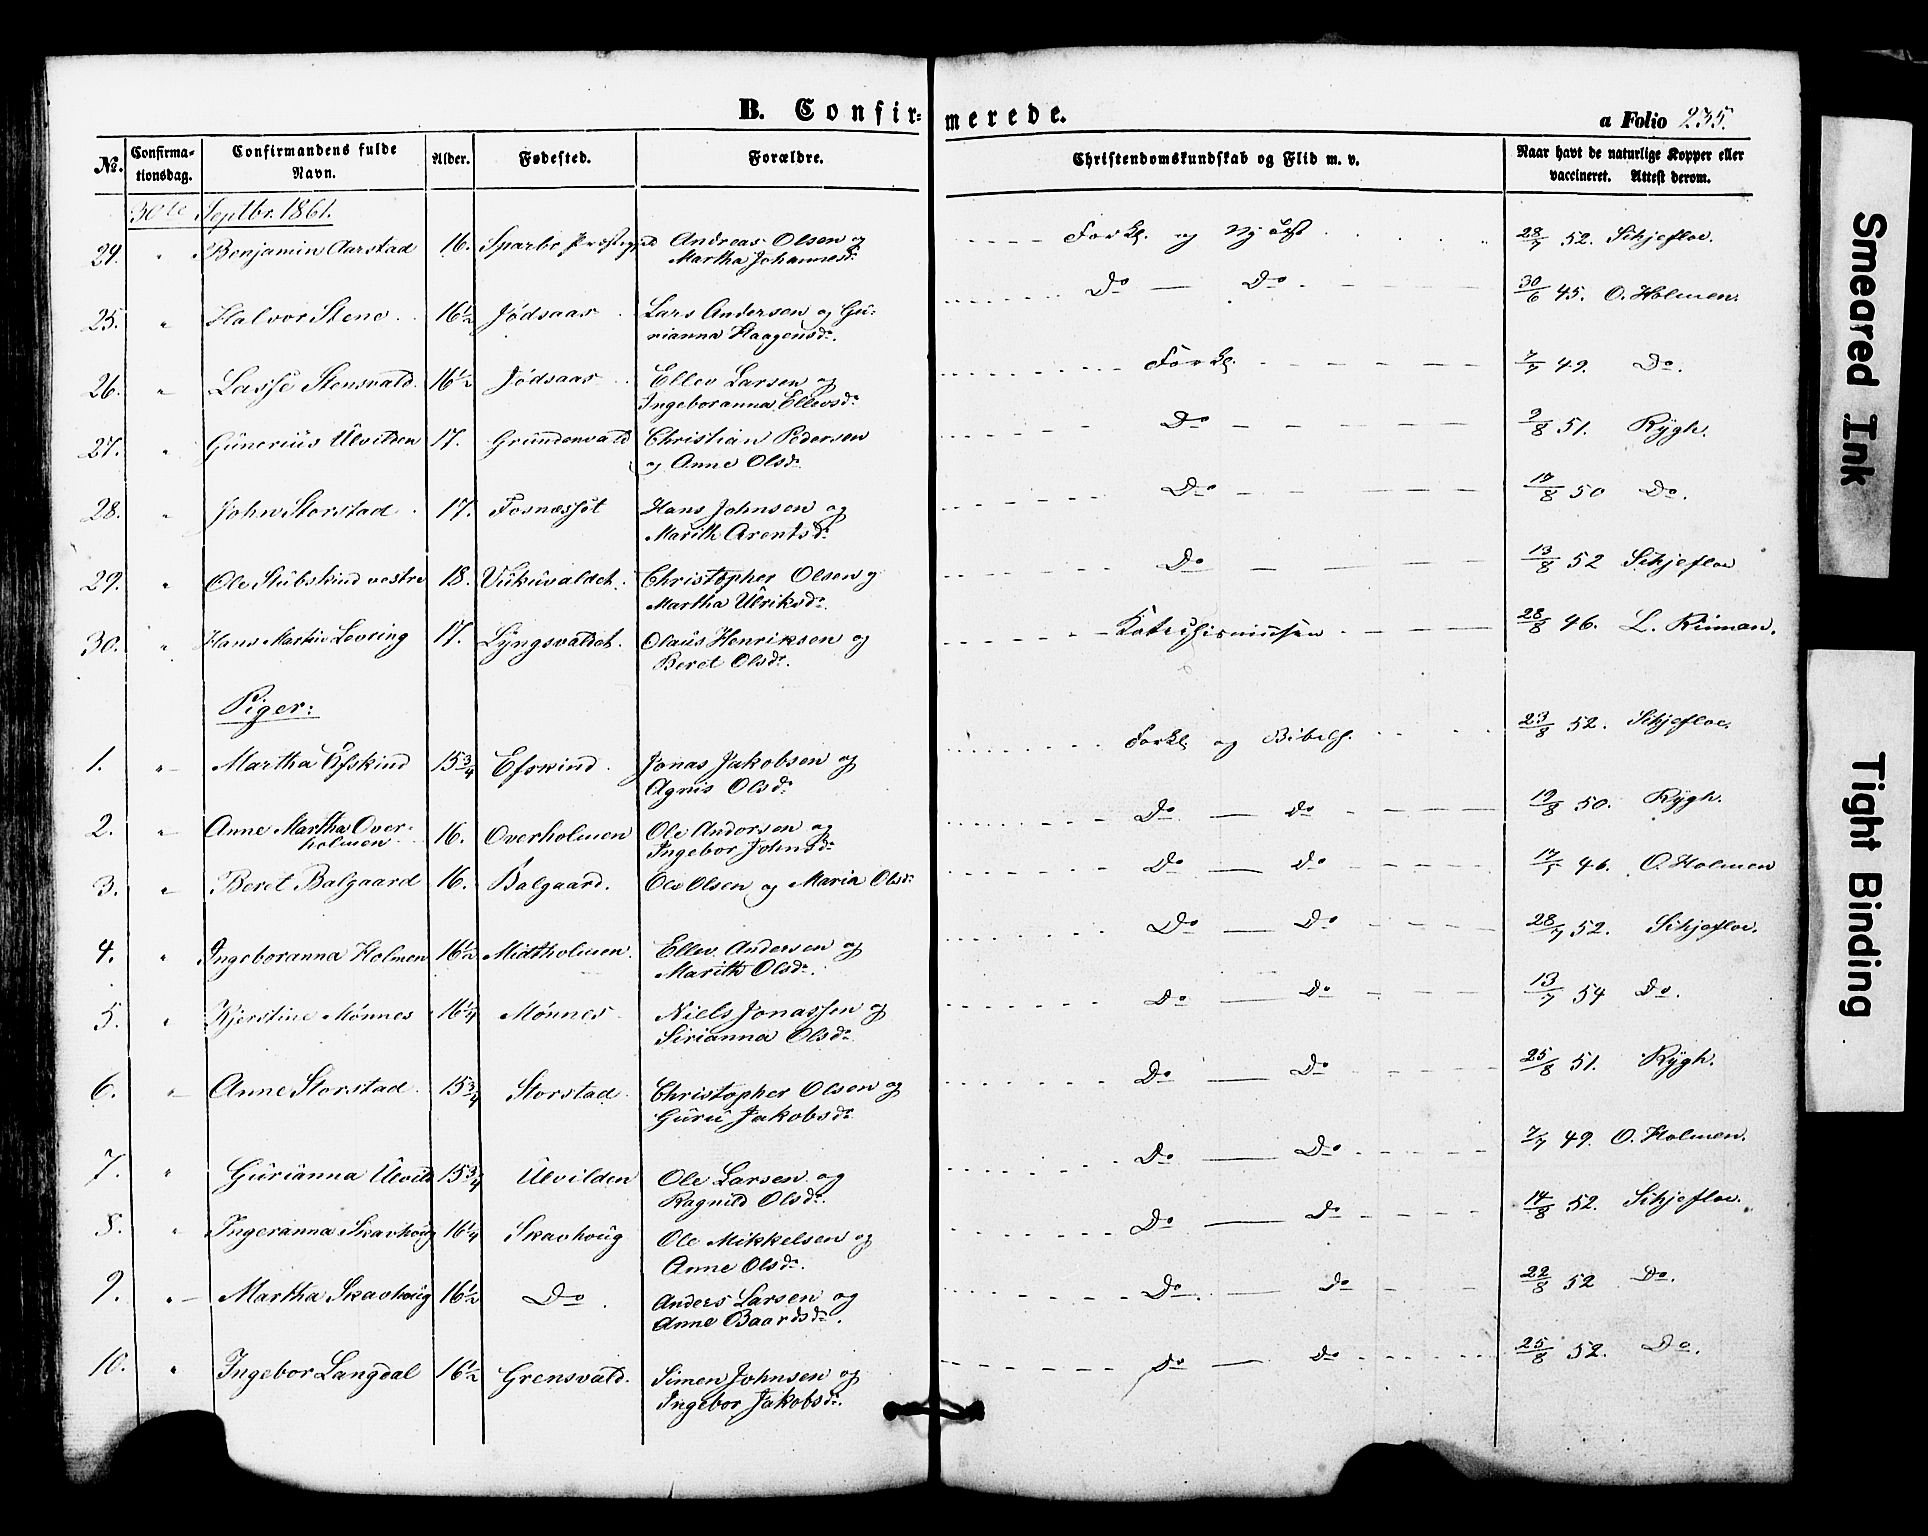 B. Confir= merede.
a Folio 235.
№. Confirma-tionsdag. Confirmandens fulde Navn. Alder. Fødested. Forældre. Christendomskundskab og Flid m. v. Naar havt de naturlige Kopper eller vaccineret. Attest derom.
30te Septbr. 1861.
24. " Benjamin Aarstad 16. Sparbo Andreas Olsen og Martha Johannesdr Forkl. og 28/7 52. Schjefloe.
25. " Halvor Stene 16½ Jødsaas Lars Andersen og Gurianna Haagensdr. Do — Do 30/6 45. O. Holmen.
26. " Lasse Stensvald 16½ Jødsaas Ellev Larsen og Ingeboranna Ellevsdr Forkl. 7/7 49. Do.
27. " Gunerius Ulvilden 17. Grundenvald Christian Pedersen og Anne Olsdr Do 9/8 51. Rygh.
28. " John Storstad 17. Fosnæsset Hans Johnsen og Marith Arentsdr Do 17/8 50 Do.
29. " Ole Stubskind vestre 18. Vukuvaldet. Christopher Olsen og Martha Ulriksdr. Do 13/8 52 Schjefloe
30. " Hans Martin Lovring 17. Lyngsvaldet. Olaus Henriksen og Beret Olsdr. Katechismusen 28/8 46. L.
Piger:
1. " Martha Efskind 15¾ Efskind. Jonas Jakobsen og Agnis Olsdr Forkl. og Bibelh. 23/8 52. Schjefloe.
2. " Anne Martha Overholmen 16. Overholmen Ole Andersen og Ingebor Johnsdr Do — Do 19/8 50. Rygh.
3. " Beret Balgaard 16. Balgaard. Ole Olsen og Maria Olsdr Do — Do 17/7 46. O. Holmen
4. " Ingeboranna Holmen 16½ Midtholmen. Ellev Andersen og Marith Olsdr. Do — Do 28/7 52. Schjefloe.
5. " Kjerstine Mønnes 16¼ Mønnes Niels Jonassen og Sirianna Olsdr Do — Do 13/7 54 Do.
6. " Anne Storstad 15¾ Storstad Christopher Olsen og Guru Jakobsdr Do — Do 25/8 51. Rygh.
7. " Gurianna Ulvild 15¾ Ulvilden Ole Larsen og Ragnild Olsdr. Do — Do 7/7 49. O. Holmen.
8. " Ingeranna Skavhoug 16¼ Skavhoug Ole Mikkelsen og Anne Olsdr. Do — Do 14/8 52. Schjefloe.
9. " Martha Skavhoug 16½ Do. Anders Larsen og Anne Baardsdr. Do. — Do 22/8 52 Do.
10. " Ingebor Langdal 16½ Grensvald. Simen Johnsen og Ingebor Jakobsdr. Do — Do 25/8 52. Do.
Smeared Ink
Tight Binding